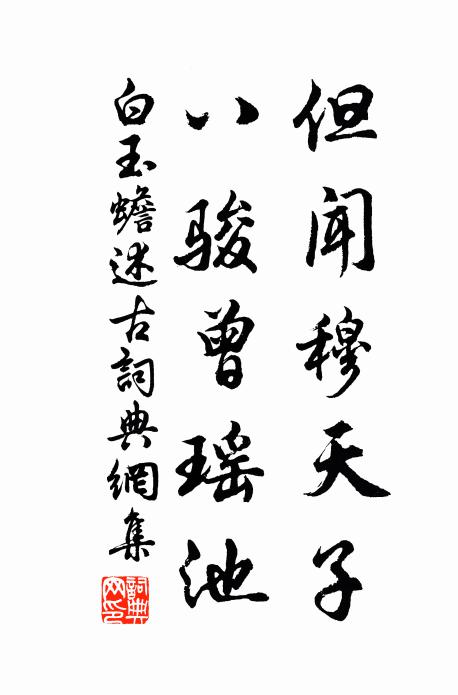 但闻穆天子
八骏曾瑶池
白玉蟾述古詞典網集
詞典
网印